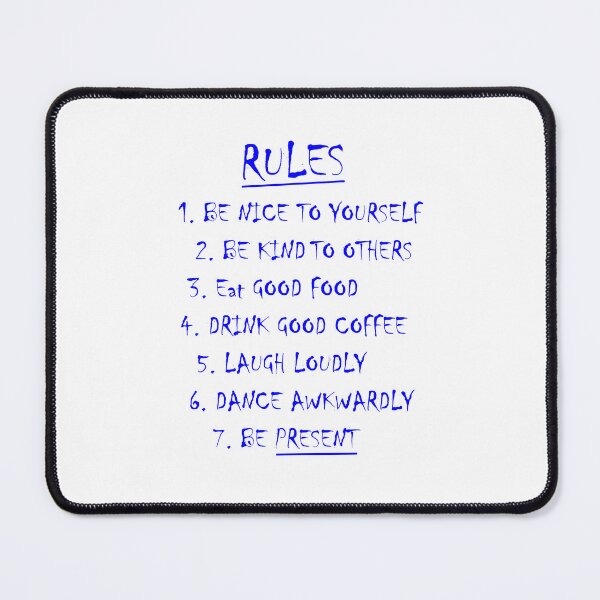 RULES
1. BE NICE TO YOURSELF
2. BE KIND TO OTHERS
3. Eat GOOD FOOD
4. DRINK GOOD COFFEE
5. LAUGH LOUDLY
6. DANCE AWKWARDLY
7. BE PRESENT